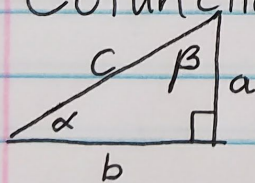 C
β
a
α
b